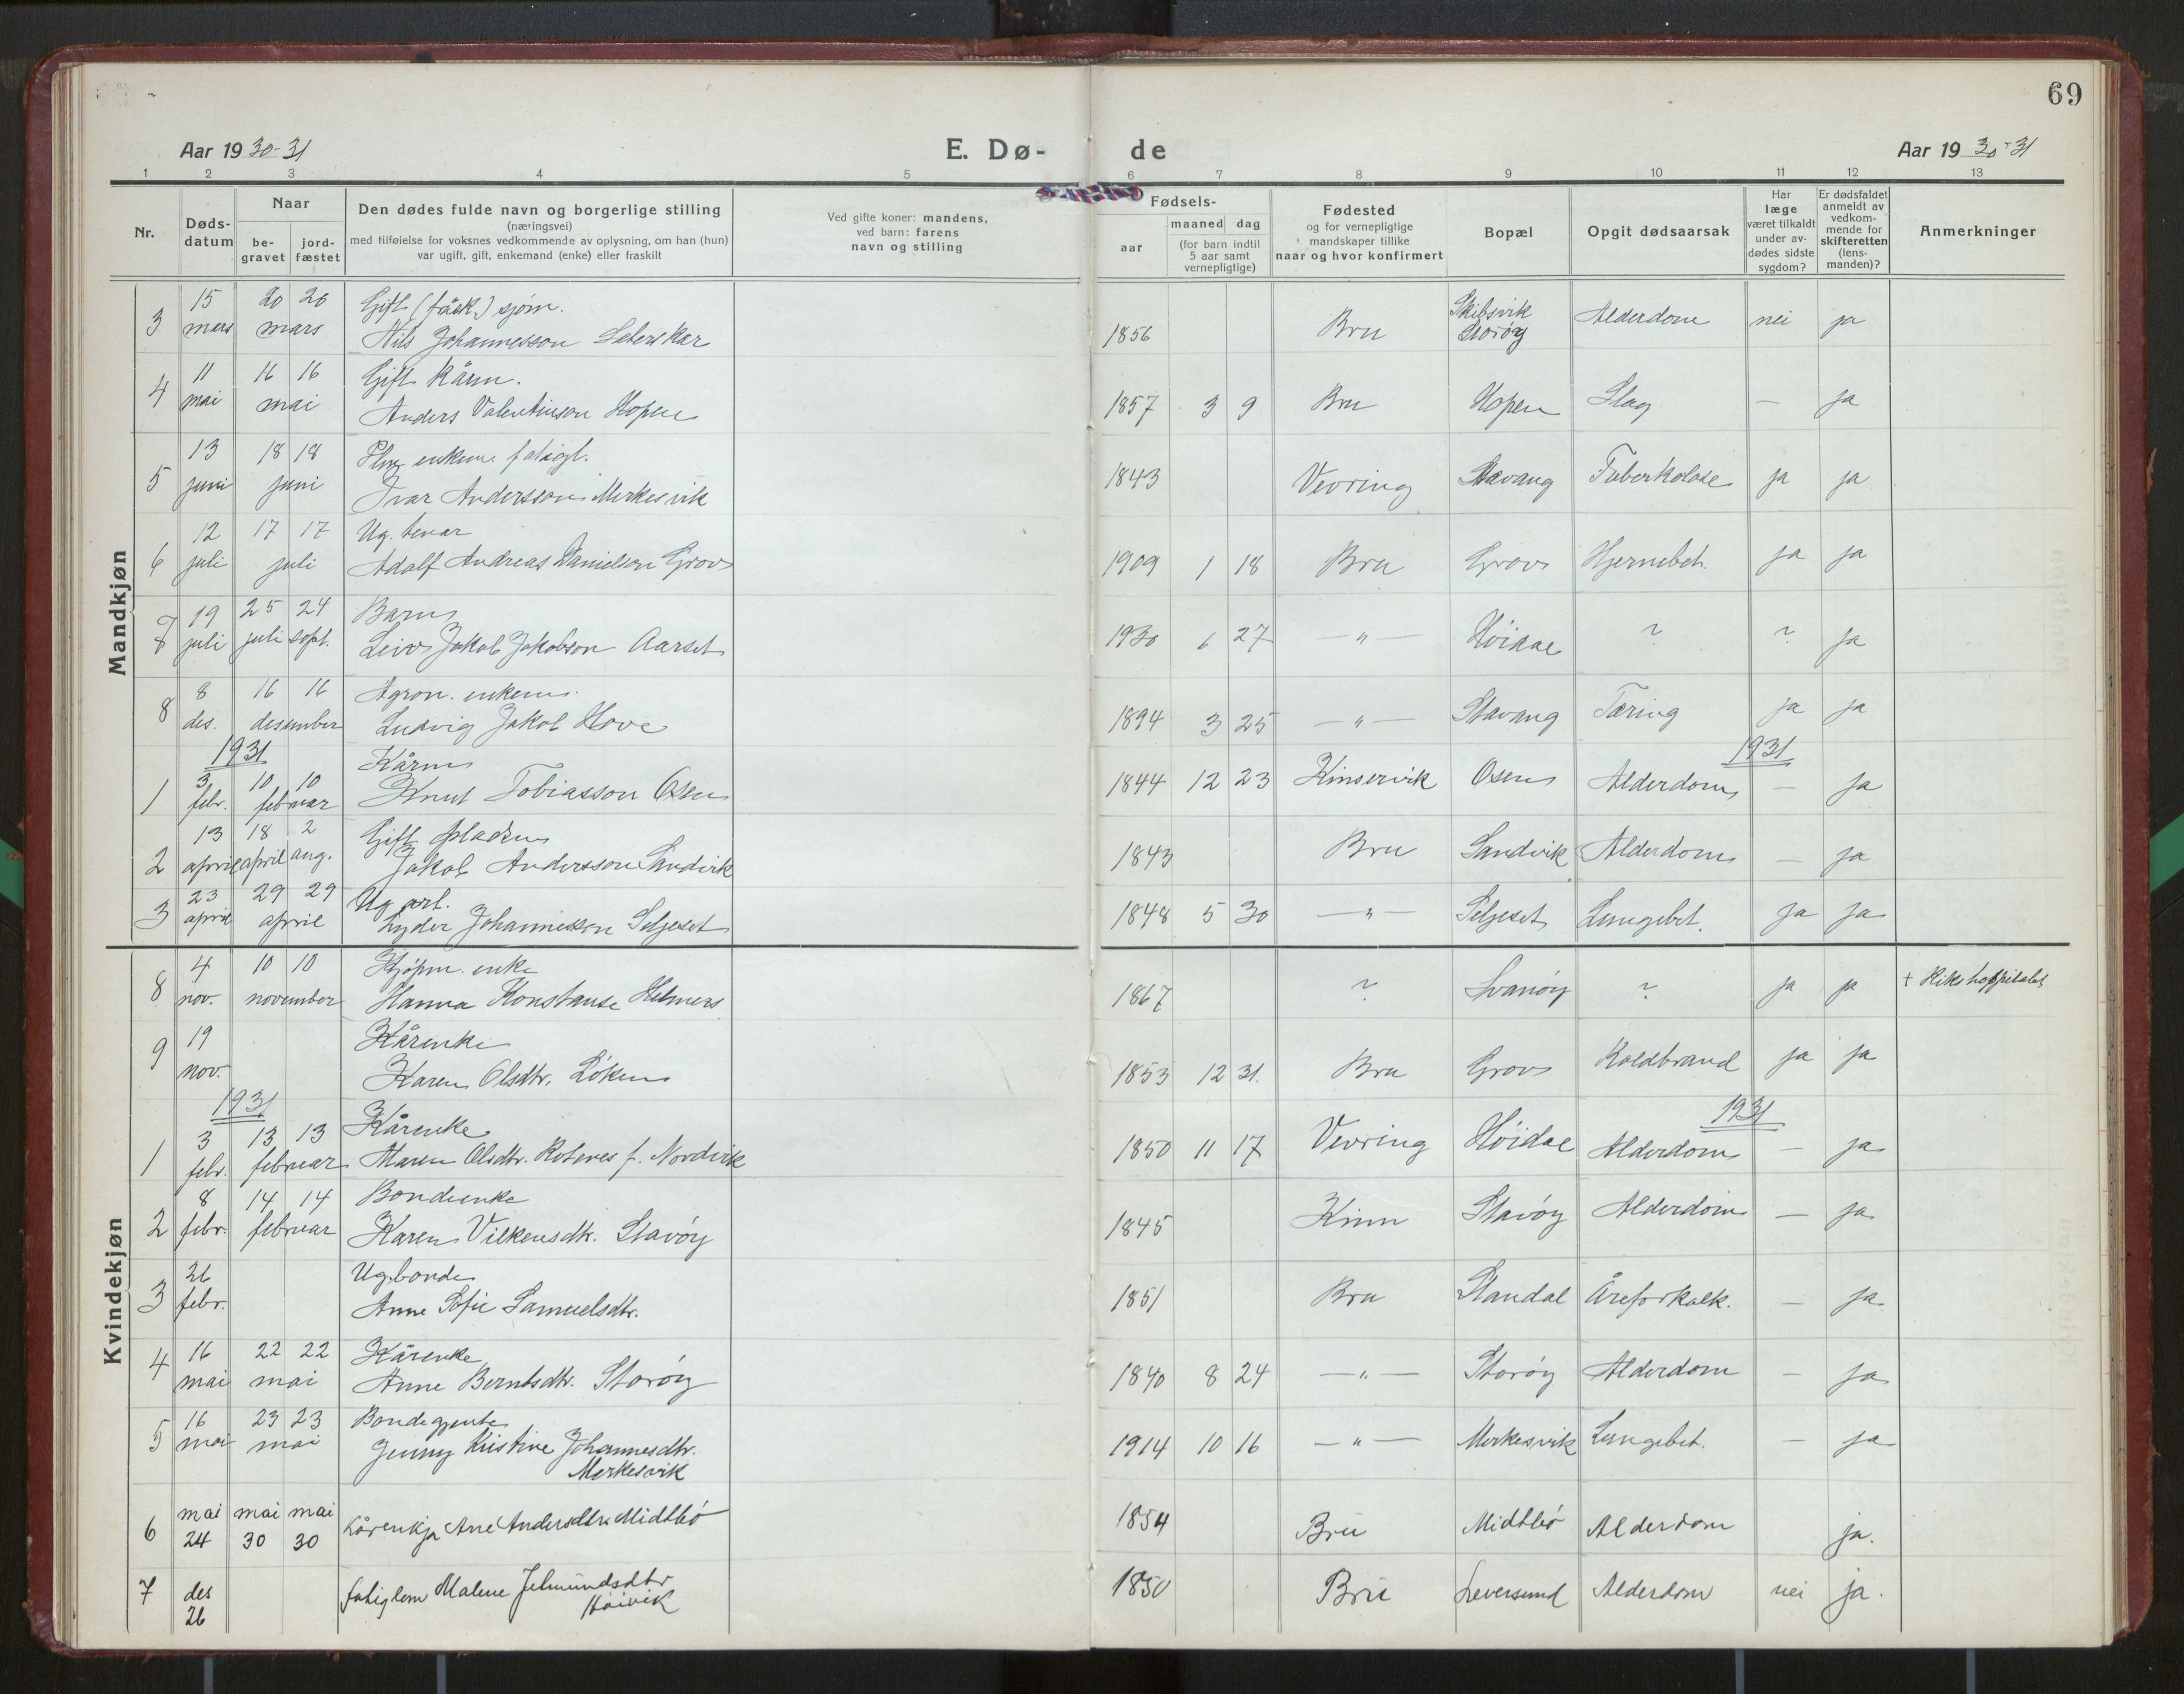 69
Aar 19 30-31
E. Dø-
de
Aar 19 30-31
1 2 3 4 5 6 7 8 9 10 11 12 13
Nr.
Døds-
datum
Naar
be-
gravet
jord-
fæstet
Den dødes fulde navn og borgerlige stilling
(næringsvei)
med tilføielse for voksnes vedkommende av oplysning, om han (hun)
var ugift, gift, enkemand (enke) eller fraskilt
Ved gifte koner: mandens,
ved barn: farens
navn og stilling
Fødsels-
aar
maaned dag
(for barn indtil
5 aar samt
vernepligtige)
Fødested
og for vernepligtige
mandskaper tillike
naar og hvor konfirmert
Bopæl
Opgit dødsaarsak
Har
læge
været tilkaldt
under av-
dødes sidste
sygdom?
Er dødsfaldet
anmeldt av
vedkom-
mende for
skifteretten
(lens-
manden)?
Anmerkninger
Mandkjøn
3 15 20 26 Gift sjøm. Skibsvik
mars mars Nils Johannesson 1856 Bru Storøy Alderdom nei ja
4 11 16 16 Gift kårm.
mai mai Anders Valentinson Hopen 1857 3 9 Bru Hopen Slag — ja
5 13 18 18 enkem. fatigl.
juni juni Ivar Andersson Merkesvik 1843 Vevring Stavang Tuberkolose ja ja
6 12 17 17 Ug. tenar
juli juli Adolf Andreas Danielson Grov 1909 1 18 Bru Grov Hjernebet. ja ja
7 19 25 24 Barn
juli juli sept. Leiv Jakob Jakobson Aarset 1930 6 27 —"— Høidal ? ? ja
8 8 16 16 Agron. enkem.
des. desember Ludvig Jakob Hove 1894 3 25 —"— Stavang Tæring ja ja
1931 1931
1 3 10 10 Kårm
febr. februar Knut Tobiasson Osen 1844 12 23 Kinservik Osen Alderdom — ja
2 13 18 2 Gift pladsm
april april aug. Jakob Andersson Sandvik 1843 Bru Sandvik Alderdom — ja
3 23 29 29 Ug. arb.
april april Lyder Johannesson Seljeset 1848 5 30 —"— Seljeset Lungebet. ja ja
Kvindekjøn
8 4 10 10 Kjøpm. enke
nov. november Hanna Konstanse Helmers 1867 ? Svanøy ? ja ja + Rikshospitalet
9 19 Kårenke
nov. Karen Olsdtr. Løken 1853 12 31. Bru Grov Koldbrand ja ja
1931 1931
1 3 13 13 Kårenke
febr. februar Maren Olsdtr. Rotenes f. Nordvik 1850 11 17 Vevring Høidal Alderdom — ja
2 8 14 14 Bondeenke
febr. februar Karen Vilkensdtr. Stavøy 1845 Kinn Stavøy Alderdom — ja
3 26 Ug. bonde
febr. Anne Sofie Samuelsdtr. 1851 Bru Standal Åreforkalk. — ja
4 16 22 22 Kårenke
mai mai Anne Berntsdtr. Storøy 1840 8 24 —"— Storøy Alderdom — ja
5 16 23 23 Bondegjente
mai mai Jenny Kristine Johannesdtr. 1914 10 16 —"— Merkesvik Lungebet. — ja
Merkesvik
6 mai mai mai Kårenkja Ane Andersdtr. Midtbø 1854 Bru Midtbø Alderdom ja.
24 30 30
7 des fatiglem Malene Jetmundsdtr 1850 Bru Leversund Alderdom nei ja.
26 Høivik